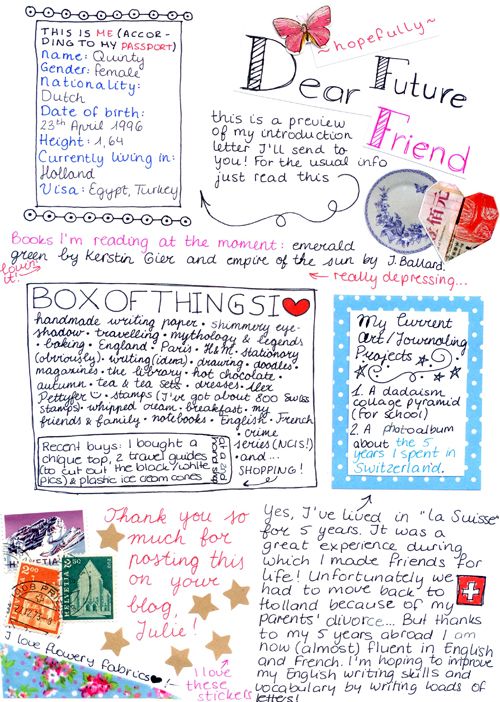 THIS IS ME (ACCOR-
DING TO MY PASSPORT)
name: Quinty
Gender: female
Nationality:
Dutch
Date of birth:
23th April 1996
Height: 1,64
Currently living in:
Holland
Visa: Egypt, Turkey
~hopefully~
Dear Future
Friend
this is a preview
of my introduction
letter I'll send to
you! For the usual info
just read this
Books I'm reading at the moment: emerald
green by Kerstin Gier and empire of the sun by J. Ballard.
lovin' it!
really depressing...
BOX OF THINGS I
handmade writing paper • shimmery eye-
shadow • travelling • mythology & legends
• baking • England • Paris • H&M • stationary
(obviously) • writing (idea) • drawing • doodles •
magazines • the library • hot chocolate •
autumn • tea & tea sets • dresses • Alex
Pettyfer • stamps (I've got about 800 Swiss
stamps) • whipped cream • breakfast • my
friends & family • notebooks • English • French
• crime
series (NCIS!)
and...
SHOPPING!
Recent buys: I bought a
chique top, 2 travel guides
(to cut out the black/white
pics) & plastic ice cream cones
My Current
Art/Journaling
Projects
1. A dadaism
collage pyramid
(for school)
2. A photoalbum
about the 5
years I spent in
Switzerland.
Thank you so
much for
posting this
on your
blog,
Julie!
HELVETIA
HELVETIA
I love flowery fabrics !
I love
these
stickers
Yes, I've lived in "la Suisse"
for 5 years. It was a
great experience during
which I made friends for
life! Unfortunately we
had to move back to
Holland because of my
parents' divorce... But thanks
to my 5 years abroad I am
now (almost) fluent in English
and French. I'm hoping to improve
my English writing skills and
vocabulary by writing loads of
letters!